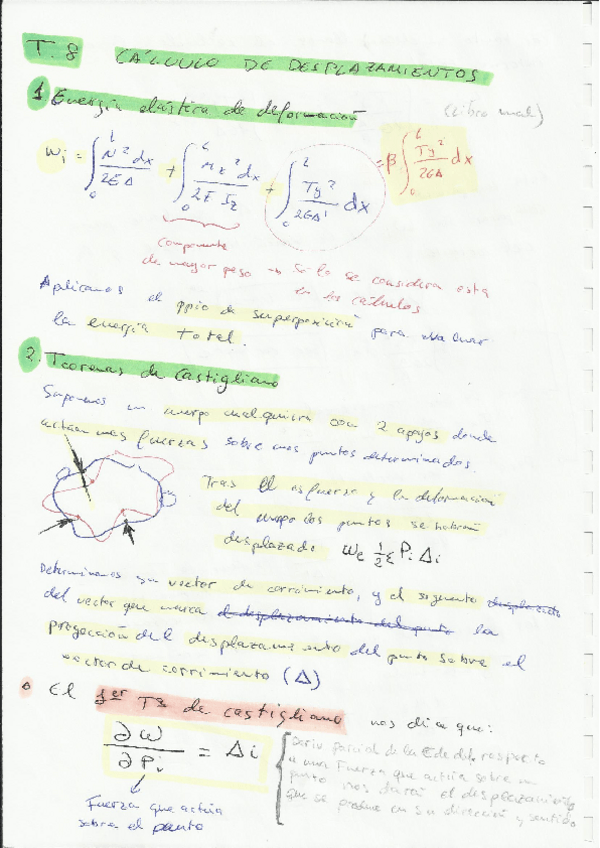 T.8 CÁLCULO DE DESPLAZAMIENTOS
1. Energía elástica de deformación (Libro mal)
Wi = ∫₀ᴸ N² dx / 2EA + ∫₀ᴸ Mz² dx / 2E Iz + ∫₀ᴸ Ty² / 2GA' dx = β ∫₀ᴸ Ty² / 2GA dx
componente
de mayor peso → Sólo se considera esta
en los cálculos
Aplicamos el ppio de superposición para evaluar
la energía total.
2. Teoremas de Castigliano
Suponemos un cuerpo cualquiera con 2 apoyos donde
actúan unas fuerzas sobre unos puntos determinados.
Tras el esfuerzo y la deformación
del cuerpo los puntos se habrán
desplazado We ½ Σ Pi Δi
Determinamos un vector de corrimiento, y el segmento
del vector que marca el desplazamiento del punto la
proyección del desplazamiento del punto sobre el
vector de corrimiento (Δ)
El 1er Tª de Castigliano nos dice que:
∂W / ∂Pi = Δi
Deriv parcial de la E de def. respecto
a una Fuerza que actúa sobre un
punto nos dará el desplazamiento
que se produce en su dirección y sentido
Fuerza que actúa
sobre el punto